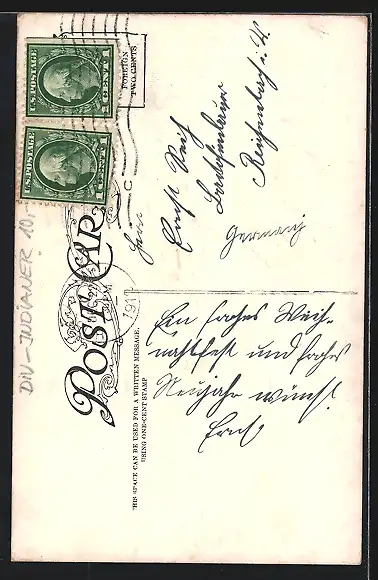 U.S. POSTAGE
1 CENT 1
U.S. POSTAGE
1 CENT 1
FOREIGN
TWO CENTS
POST CARD
THIS SPACE CAN BE USED FOR A WRITTEN MESSAGE.
USING ONE-CENT STAMP
1911
DIV-INDIANER 10,-
Herrn
Ernst
Reichenbach i. V.
Germany
Ein frohes Weih-
nachtsfest und frohes
Neujahr wünscht
Ernst